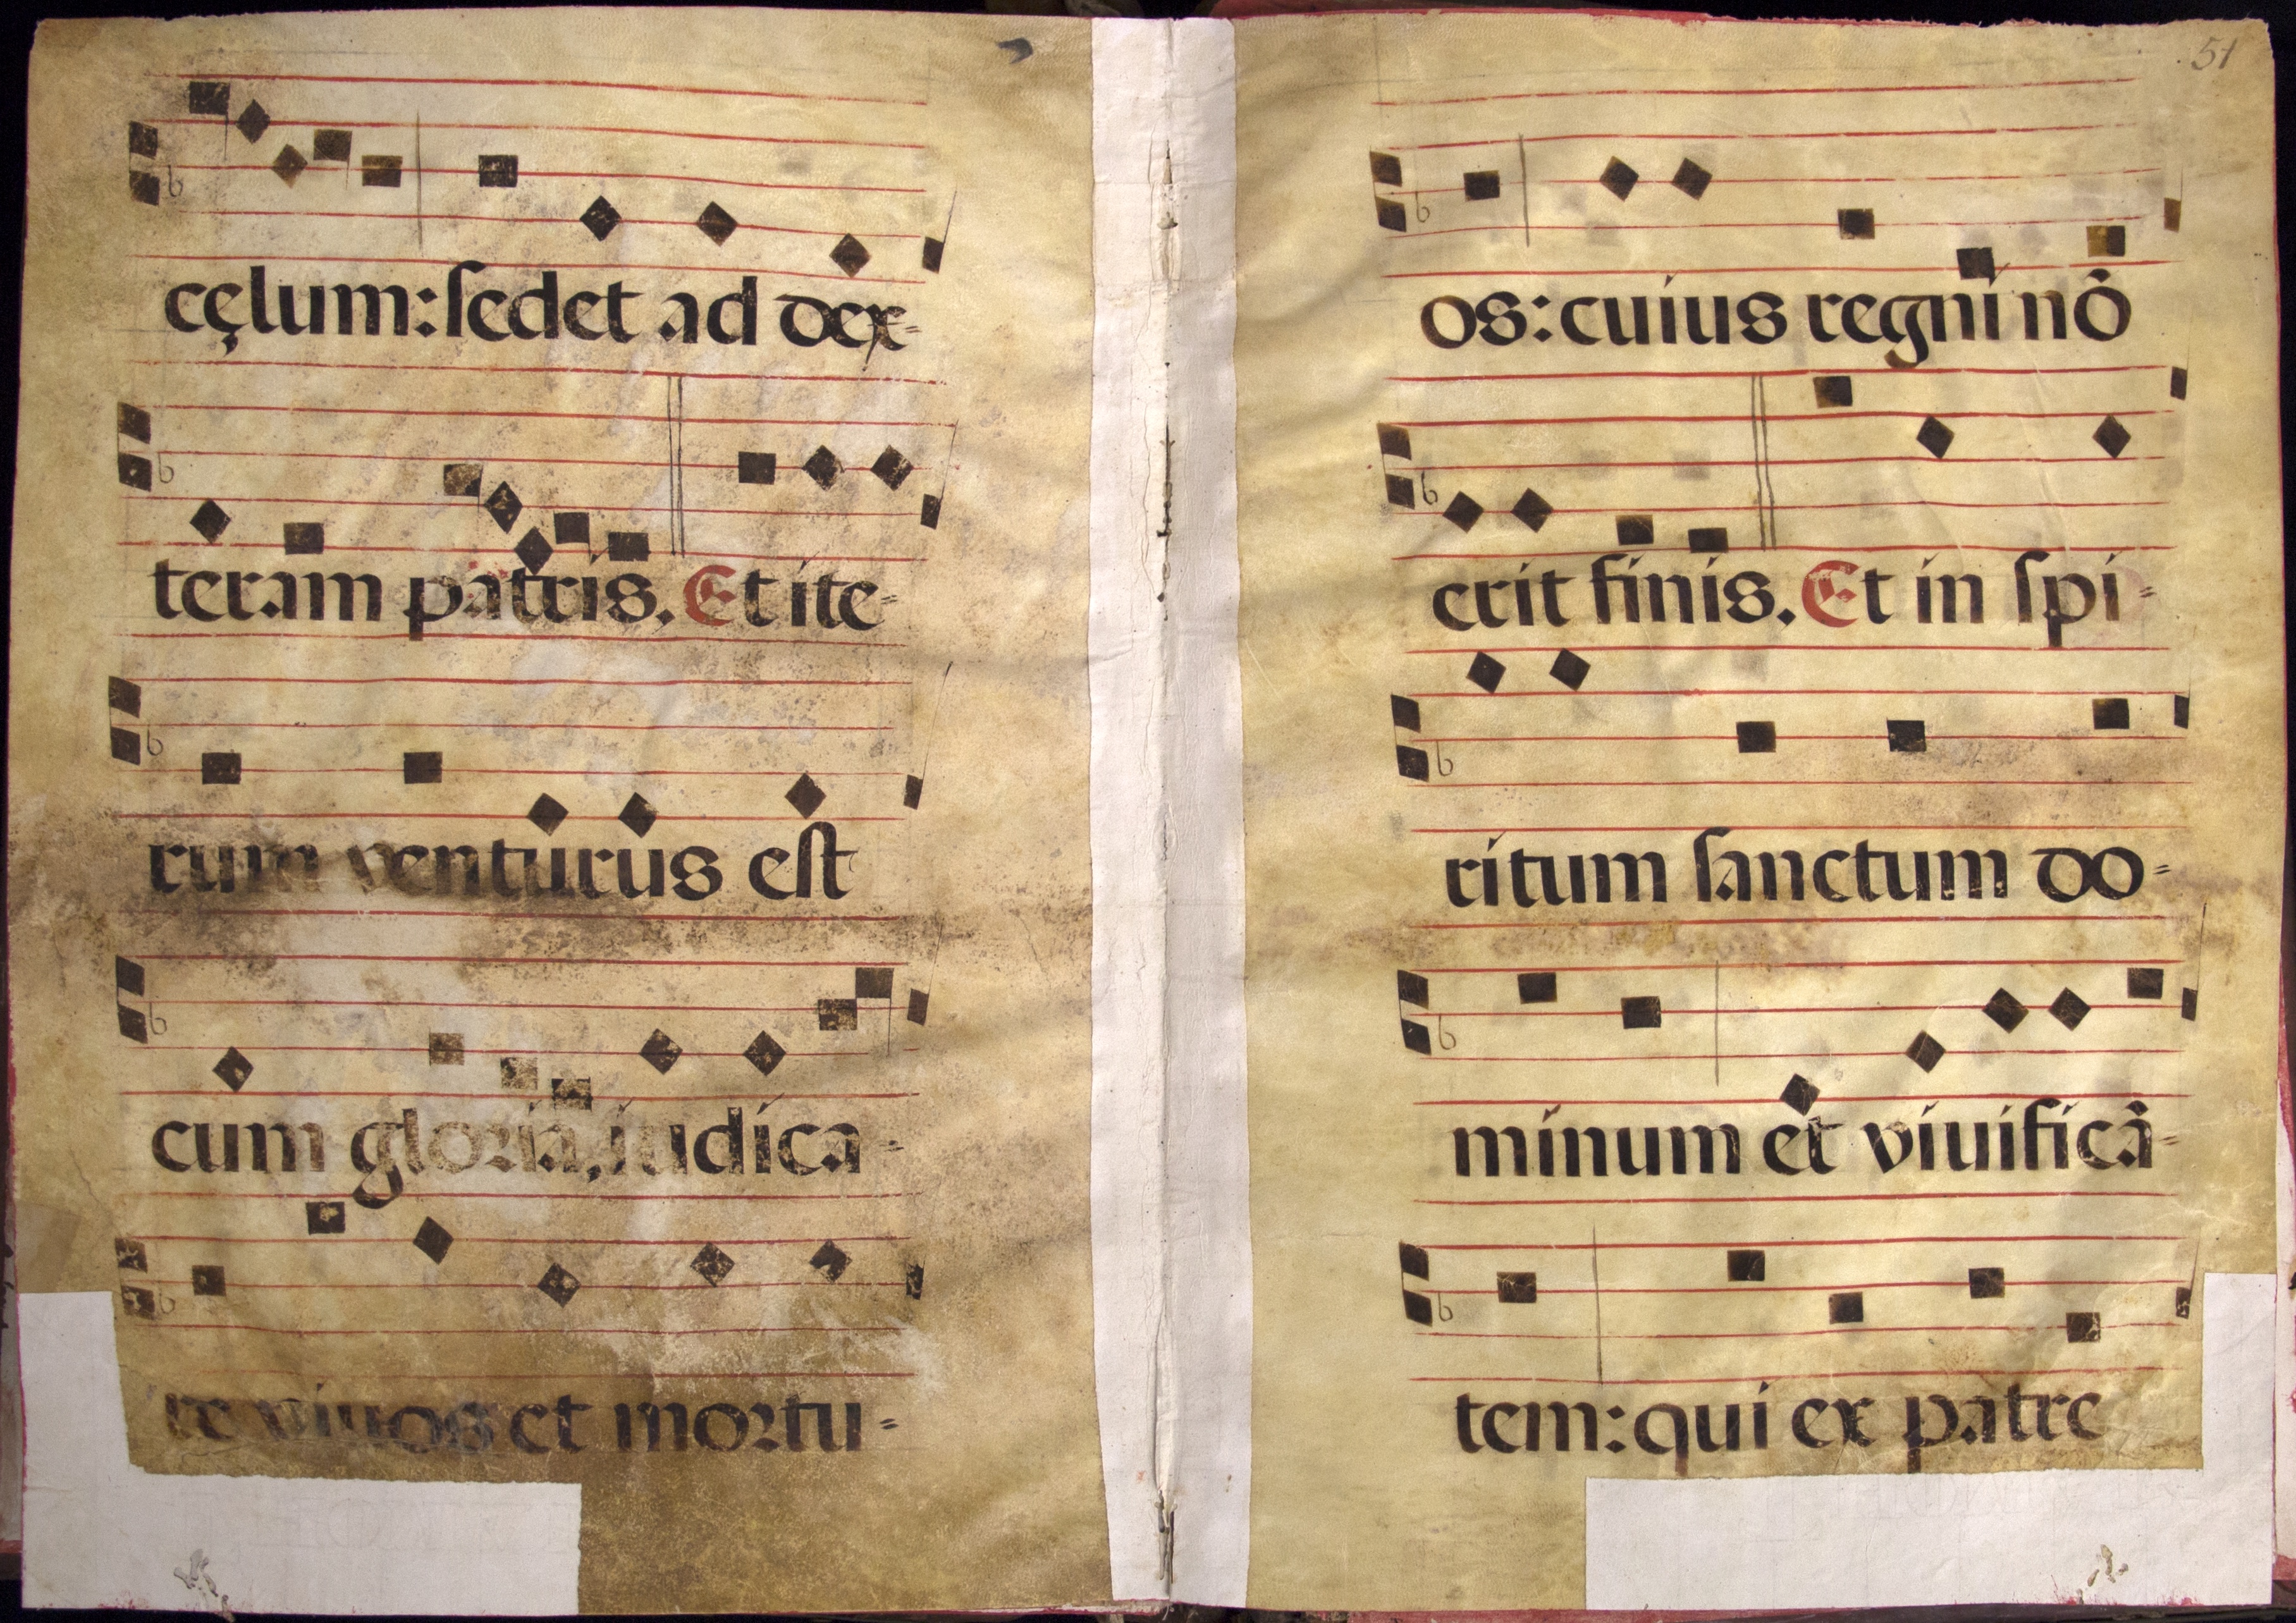 cęlum: sedet ad dex=
teram patris. Et ite=
rum venturus est
cum gloria, iudica=
re viuos et mortu=
51
os: cuius regni nō
erit finis. Et in spi=
ritum sanctum do=
minum et viuificā=
tem: qui ex patre